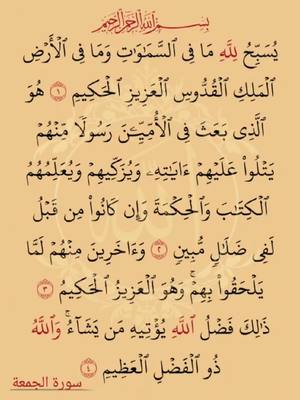 بِسْمِ اللَّهِ الرَّحْمَٰنِ الرَّحِيمِ
يُسَبِّحُ لِلَّهِ مَا فِي ٱلسَّمَٰوَٰتِ وَمَا فِي ٱلْأَرْضِ
ٱلْمَلِكِ ٱلْقُدُّوسِ ٱلْعَزِيزِ ٱلْحَكِيمِ ١ هُوَ
ٱلَّذِي بَعَثَ فِي ٱلْأُمِّيِّـۧنَ رَسُولًا مِّنْهُمْ
يَتْلُوا۟ عَلَيْهِمْ ءَايَٰتِهِۦ وَيُزَكِّيهِمْ وَيُعَلِّمُهُمُ
ٱلْكِتَٰبَ وَٱلْحِكْمَةَ وَإِن كَانُوا۟ مِن قَبْلُ
لَفِي ضَلَٰلٍ مُّبِينٍ ٢ وَءَاخَرِينَ مِنْهُمْ لَمَّا
يَلْحَقُوا۟ بِهِمْ ۚ وَهُوَ ٱلْعَزِيزُ ٱلْحَكِيمُ ٣
ذَٰلِكَ فَضْلُ ٱللَّهِ يُؤْتِيهِ مَن يَشَآءُ ۚ وَٱللَّهُ
ذُو ٱلْفَضْلِ ٱلْعَظِيمِ ٤
سورة الجمعة